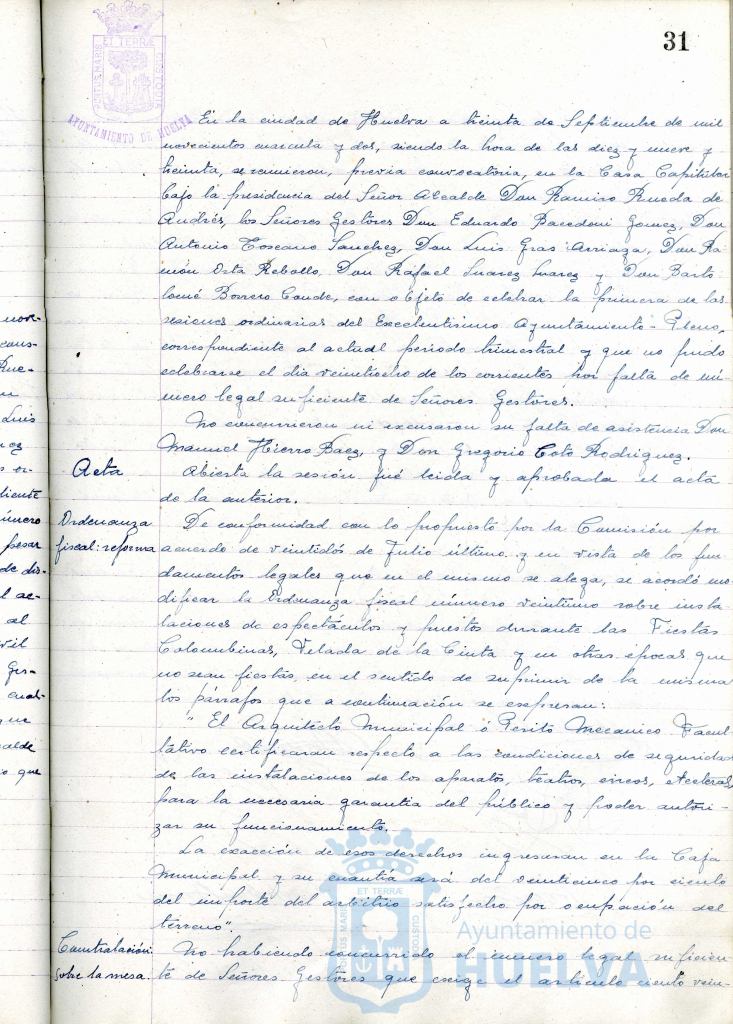 31
PORTUS MARIS ET TERRÆ CUSTODIA
AYUNTAMIENTO DE HUELVA
En la ciudad de Huelva a treinta de Septiembre de mil
novecientos cuarenta y dos, siendo la hora de las diez y nueve y
treinta, se reunieron, previa convocatoria, en la Casa Capitular
bajo la presidencia del Señor Alcalde Don Ramiro Rueda de
Andrés, los Señores Gestores Don Eduardo Bacedoni Gomez, Don
Antonio Toscano Sanchez, Don Luis Gras Arriaga, Don Ra-
món Orta Rebollo, Don Rafael Suarez Suarez y Don Barto
lomé Borrero Conde, con objeto de celebrar la primera de las
sesiones ordinarias del Excelentisimo Ayuntamiento-Pleno,
correspondiente al actual periodo trimestral y que no pudo
celebrarse el dia veintiocho de los corrientes por falta de nú-
mero legal suficiente de Señores Gestores.
No concurrieron ni excusaron su falta de asistencia Don
Manuel Hierro Baez, y Don Gregorio Coto Rodriguez.
Acta
Abierta la sesión fué leida y aprobada el acta
de la anterior.
Ordenanza
fiscal: reforma
De conformidad con lo propuesto por la Comisión por
acuerdo de veintidós de Julio último y en vista de los fun
damentos legales que en el mismo se alega, se acordó mo
dificar la Ordenanza fiscal número veintiuno sobre insta
laciones de espectáculos y puestos durante las Fiestas
Colombinas, Velada de la Cinta y en otras épocas que
no sean fiestas, en el sentido de suprimir de la misma
los párrafos que a continuación se expresan:
"El Arquitecto Municipal o Perito Mecanico Facul
tativo certificaran respecto a las condiciones de seguridad
de las instalaciones de los aparatos, teatros, circos, etcetera,
para la necesaria garantia del público y poder autori-
zar su funcionamiento.
La exacción de esos derechos ingresaran en la Caja
Municipal y su cuantia será del veinticinco por ciento
del importe del arbitrio satisfecho por ocupación del
terreno".
Contratación:
sobre la mesa.
No habiendo concurrido el número legal suficien-
te de Señores Gestores que exige el articulo ciento vein-
nove-
Rue-
Luis
diente
úmero
pesar
de dis-
al
vil
Ges-
que
calde
o que
ET TERRÆ
Ayuntamiento de
HUELVA